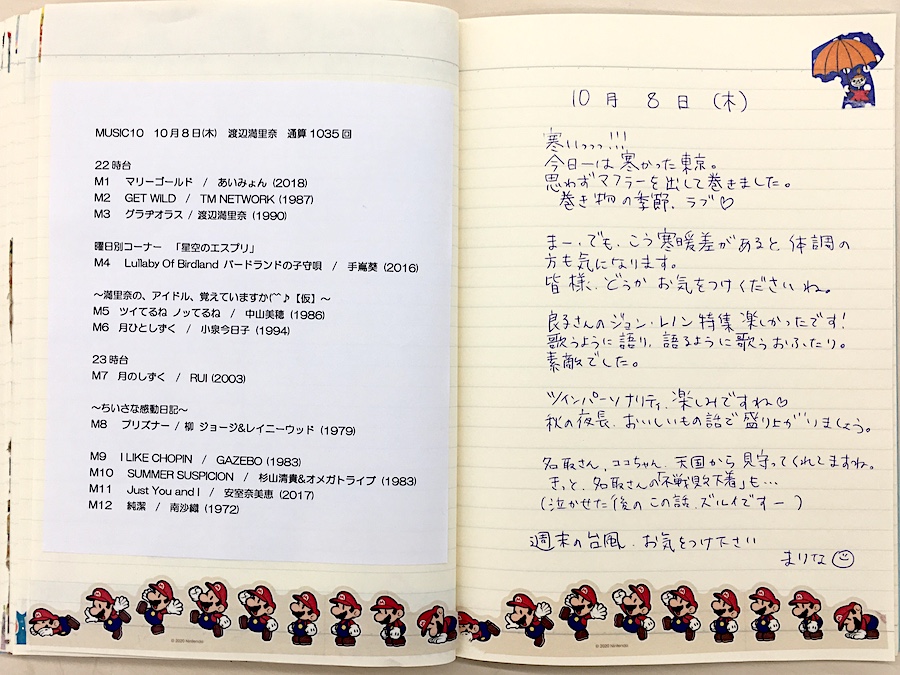 MUSIC10 10月8日(木) 渡辺満里奈 通算1035回
22時台
M1 マリーゴールド / あいみょん (2018)
M2 GET WILD / TM NETWORK (1987)
M3 グラヂオラス / 渡辺満里奈 (1990)
曜日別コーナー 「星空のエスプリ」
M4 Lullaby Of Birdland バードランドの子守唄 / 手嶌葵 (2016)
～満里奈の、アイドル、覚えていますか(^^♪【仮】～
M5 ツイてるね ノッてるね / 中山美穂 (1986)
M6 月ひとしずく / 小泉今日子 (1994)
23時台
M7 月のしずく / RUI (2003)
～ちいさな感動日記～
M8 プリズナー / 柳 ジョージ&レイニーウッド (1979)
M9 I LIKE CHOPIN / GAZEBO (1983)
M10 SUMMER SUSPICION / 杉山清貴&オメガトライブ (1983)
M11 Just You and I / 安室奈美恵 (2017)
M12 純潔 / 南沙織 (1972)
© 2020 Nintendo
10月 8日 (木)
寒いっっっ!!!
今日一は寒かった東京。
思わずマフラーを出して巻きました。
巻き物の季節、ラブ♡
まー、でも、こう寒暖差があると、体調の
方も気になります。
皆様、どうか お気をつけくださいね。
良子さんのジョン・レノン特集 楽しかったです!
歌うように語り、語るように歌うおふたり。
素敵でした。
ツインパーソナリティ、楽しみですね♡
秋の夜長、おいしいもの話で盛り上がりましょう。
名取さん、ココちゃん、天国から見守ってくれてますね。
きっと、名取さんの「不戦敗下着」も…
(泣かせた後の この話、ズルイですー)
週末の台風、お気をつけ下さい
まりな
© 2020 Nintendo